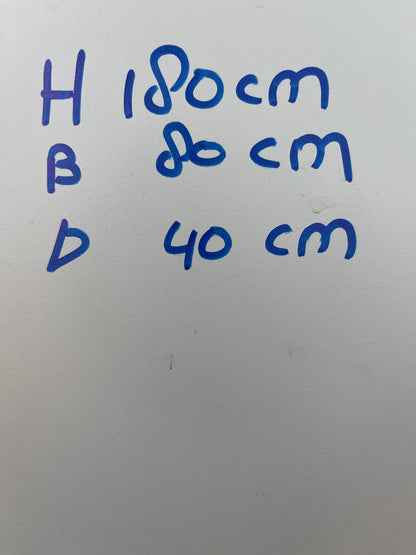 H 180 cm
B 80 cm
D 40 cm